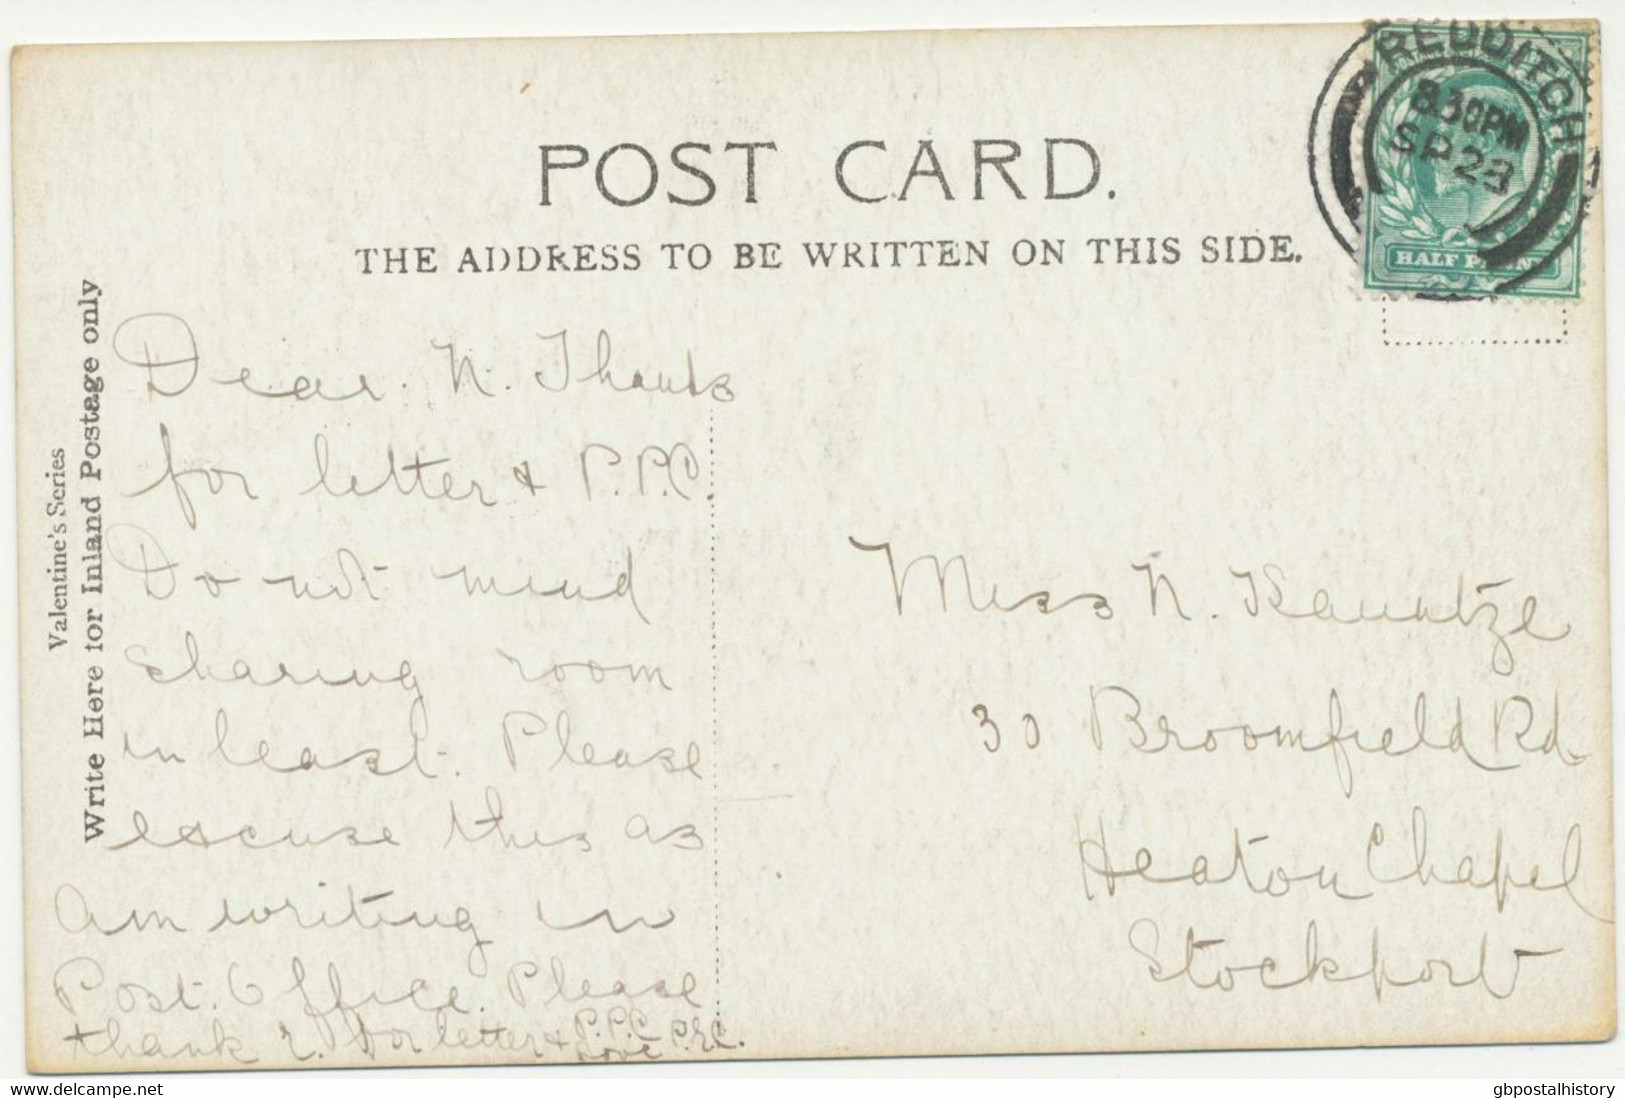 POST CARD.
THE ADDRESS TO BE WRITTEN ON THIS SIDE.
REDDITCH
8 30 PM
SP 23
HALF PENNY
Valentine's Series
Write Here for Inland Postage only
Dear N. Thanks
for letter & P.P.C.
Do not mind
sharing room
in least. Please
excuse this as
am writing in
Post. Office. Please
thank L. for letter & P.P.C
Love
Miss N. Kauntze
30 Broomfield Rd.
Heaton Chapel
Stockport
gbpostalhistory